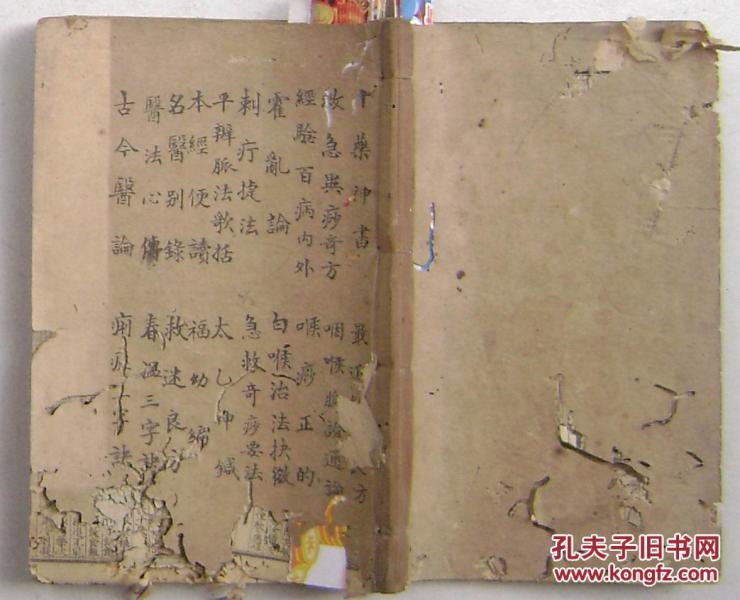 十藥神書
救急異痧奇方
經驗百病內外方
霍亂論
刺疔捷法
平辨脈法歌括
本經便讀
名醫別錄
醫法心傳
古今醫論
咽喉脈證通論
喉痧正的
白喉治法抉微
急救奇痧要法
太乙神鍼
福幼編
救迷良方
春溫三字訣
痢症三字訣
孔夫子旧书网
www.kongfz.com